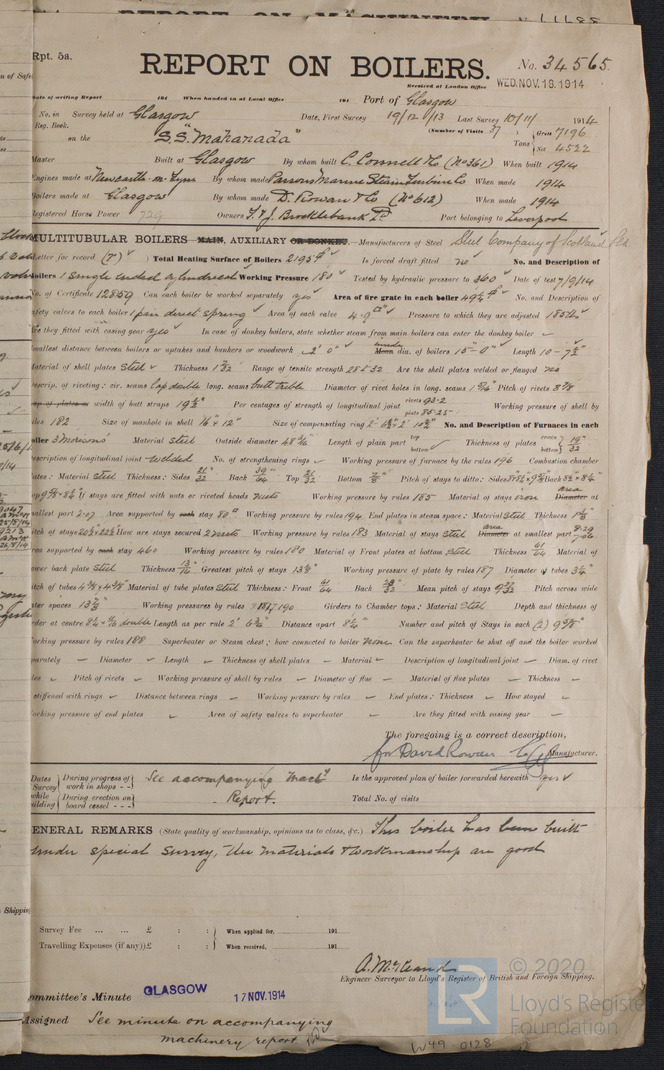 Rpt. 5a.
REPORT ON BOILERS.
No. 34565.
Received at London Office
WED. NOV. 18. 1914
Date of writing Report 191 When handed in at Local Office 191 Port of Glasgow
No. in Survey held at Glasgow Date, First Survey 19/12/13 Last Survey 10/11/ 1914
Reg. Book. (Number of Visits 37)
on the S.S. "Mahanada" Tons Gross 7196 Net 4522
Master Built at Glasgow By whom built C. Connell & Co (No 361) When built 1914
Engines made at Newcastle-on-Tyne By whom made Parsons Marine Steam Turbine Co When made 1914
Boilers made at Glasgow By whom made D. Rowan & Co (No 612) When made 1914
Registered Horse Power 729 Owners T. & J. Brocklebank Ld Port belonging to Liverpool
MULTITUBULAR BOILERS MAIN, AUXILIARY OR DONKEY.—Manufacturers of Steel Steel Company of Scotland Ltd
Letter for record (S) Total Heating Surface of Boilers 2195 Is forced draft fitted no No. and Description of
Boilers 1 Single ended cylindrical Working Pressure 180 Tested by hydraulic pressure to 360 Date of test 7/9/14
No. of Certificate 12859 Can each boiler be worked separately yes Area of fire grate in each boiler 49½ No. and Description of
safety valves to each boiler 1 pair direct spring Area of each valve Pressure to which they are adjusted 185
Are they fitted with easing gear yes In case of donkey boilers, state whether steam from main boilers can enter the donkey boiler
Smallest distance between boilers or uptakes and bunkers or woodwork 2' 0" Mean dia. of boilers 15'-0" Length 10-7½
Material of shell plates Steel Thickness Range of tensile strength 28 & 32 Are the shell plates welded or flanged no
Descrip. of riveting: cir. seams Lap double long. seams butt treble Diameter of rivet holes in long. seams Pitch of rivets 8⅞
Lap of plates or width of butt straps 19½ Per centages of strength of longitudinal joint rivets 93.2 plate 85.25 Working pressure of shell by
rules 182 Size of manhole in shell 16" × 12" Size of compensating ring No. and Description of Furnaces in each
boiler 3 Morisons Material Steel Outside diameter Length of plain part top bottom Thickness of plates crown bottom 19/32
Description of longitudinal joint welded No. of strengthening rings Working pressure of furnace by the rules 196 Combustion chamber
plates: Material Steel Thickness: Sides 21/32 Back Top 21/32 Bottom Pitch of stays to ditto: Sides Back
If stays are fitted with nuts or riveted heads nuts Working pressure by rules 185 Material of stays iron Diameter at area
smallest part 2.07 Area supported by each stay 80 Working pressure by rules 194 End plates in steam space: Material Steel Thickness
Pitch of stays How are stays secured 2 nuts Working pressure by rules 183 Material of stays Steel Diameter at smallest part area
Area supported by each stay 460 Working pressure by rules 180 Material of Front plates at bottom Steel Thickness 61/64 Material of
Lower back plate Steel Thickness Greatest pitch of stays Working pressure of plate by rules 187 Diameter of tubes 3¼
Pitch of tubes Material of tube plates Steel Thickness: Front 61/64 Back Mean pitch of stays Pitch across wide
water spaces Working pressures by rules Girders to Chamber tops: Material Steel Depth and thickness of
girder at centre double Length as per rule Distance apart Number and pitch of Stays in each (2)
Working pressure by rules 188 Superheater or Steam chest; how connected to boiler None Can the superheater be shut off and the boiler worked
separately Diameter Length Thickness of shell plates Material Description of longitudinal joint Diam. of rivet
holes Pitch of rivets Working pressure of shell by rules Diameter of flue Material of flue plates Thickness
If stiffened with rings Distance between rings Working pressure by rules End plates: Thickness How stayed
Working pressure of end plates Area of safety valves to superheater Are they fitted with easing gear
The foregoing is a correct description,
for David Rowan & Co Manufacturer.
Dates of Survey while building During progress of work in shops - - See accompanying Machy Is the approved plan of boiler forwarded herewith yes
During erection on board vessel - - - Report. Total No. of visits
GENERAL REMARKS (State quality of workmanship, opinions as to class, &c.) This boiler has been built
under special survey, the materials & workmanship are good
Survey Fee ... ... £ : : When applied for, 191
Travelling Expenses (if any) £ : : When received, 191
Engineer Surveyor to Lloyd's Register of British and Foreign Shipping.
Committee's Minute GLASGOW 17 NOV. 1914
Assigned See minute on accompanying
machinery report
W49-0128
LR
© 2020
Lloyd's Register
Foundation